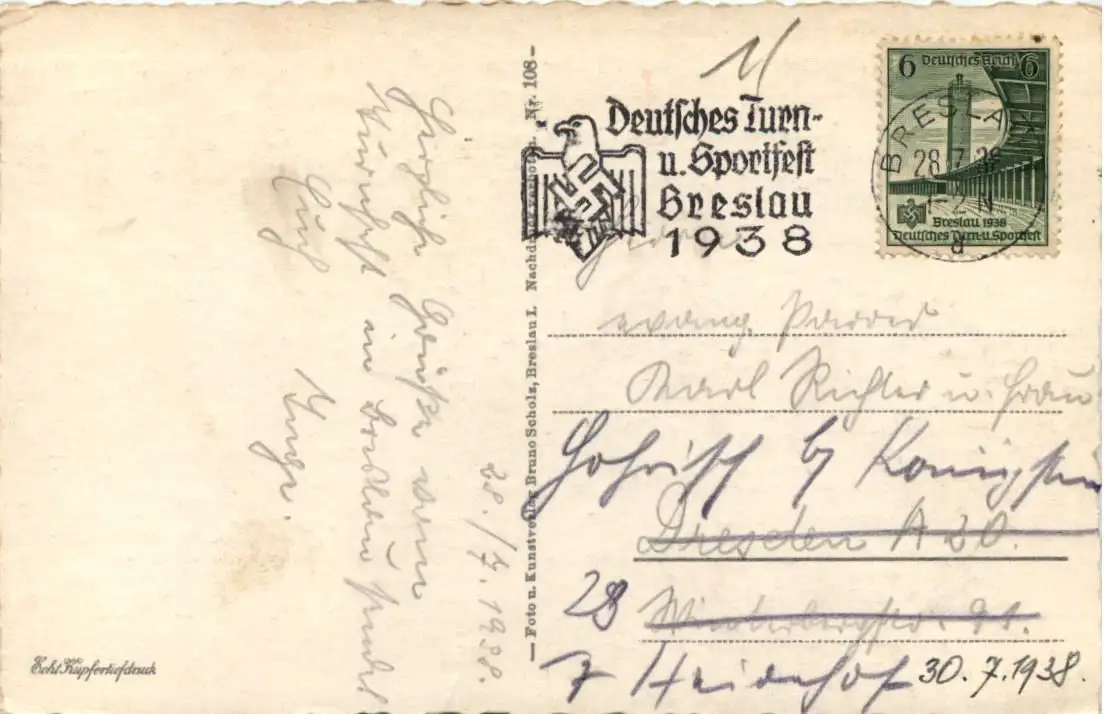 Herzliche Grüße vom
Turnfest in Breslau sendet
Euch
Inge.
28./7.1938.
— Foto u. Kunstverlag Bruno Scholz, Breslau I. Nr. 108 —
Deutsches Turn-
u. Sportfest
Breslau
1938
6 Deutsches Reich 6
BRESLAU
28.7.38
Breslau 1938
Deutsches Turn-u. Sportfest
a
evang. Pfarrer
Karl Richter u. Frau
Gohrisch b/ Königstein
Dresden A 20.
28
7 Heidehof
30.7.1938.
Echt Kupfertiefdruck